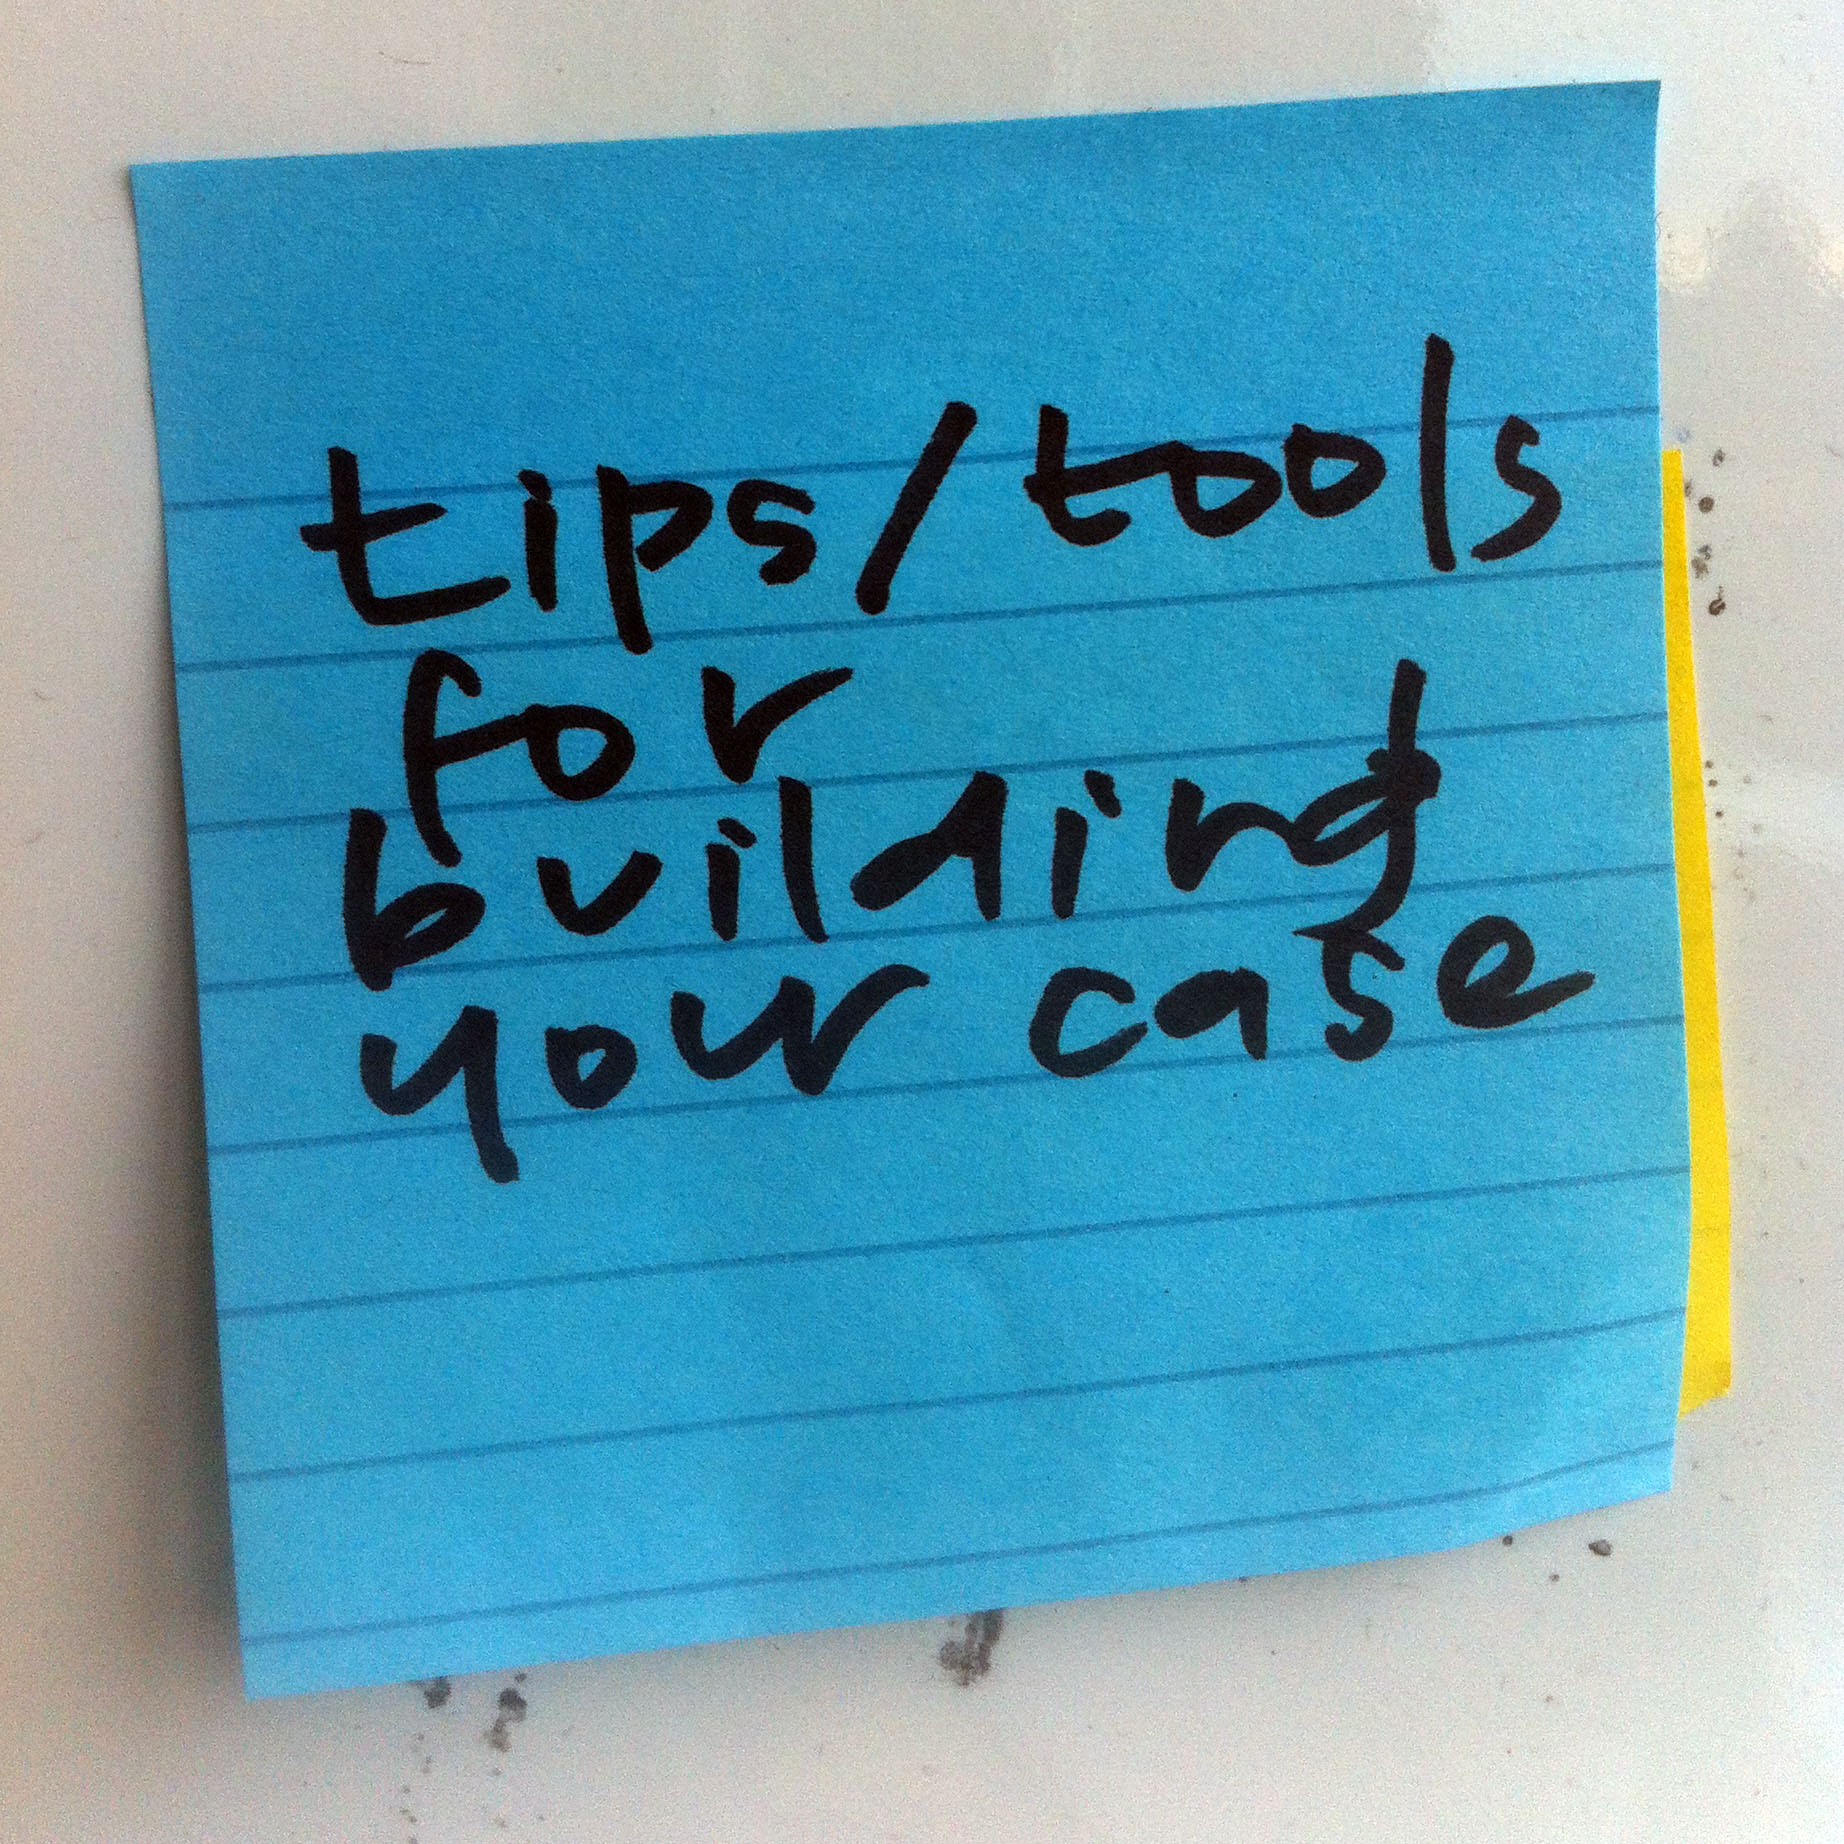 tips/tools
for
building
your case